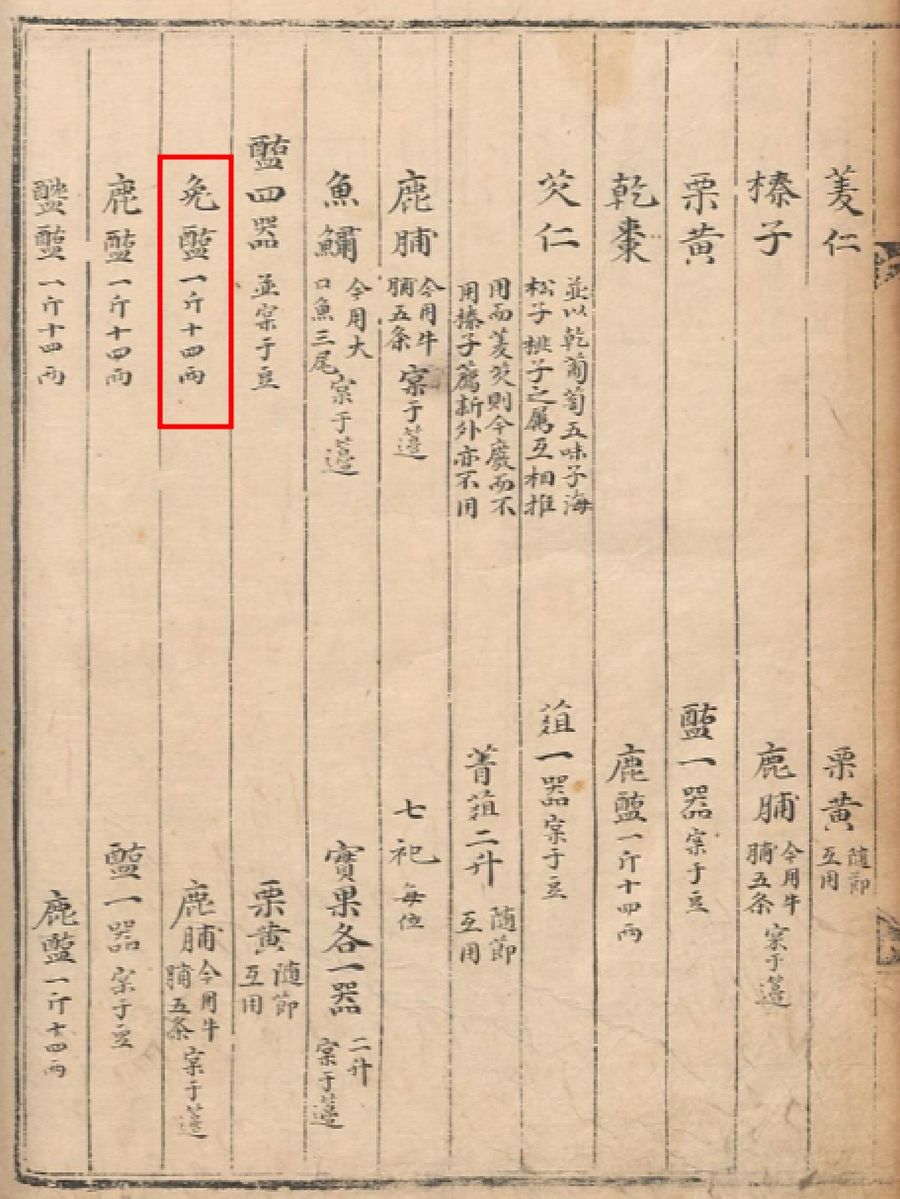 菱仁
榛子
栗黃
乾棗
芡仁 並以乾葡萄五味子海
松子桃子之属互相推
用而菱芡則今廢而不
用榛子薦新外亦不用
鹿脯 今用牛
脯五条 宲于籩
魚鱐 今用大
口魚三尾 宲于籩
醢四器 並宲于豆
免醢 一斤十四兩
鹿醢 一斤十四兩
醓醢 一斤十四兩
栗黃 随節
互用
鹿脯 今用牛
脯五条 宲于籩
醢一器 宲于豆
鹿醢 一斤十四兩
菹一器 宲于豆
菁菹二升 随節
互用
七祀 每位
實果各一器 二升
宲于籩
栗黃 随節
互用
鹿脯 今用牛
脯五条 宲于籩
醢一器 宲于豆
鹿醢 一斤十四兩